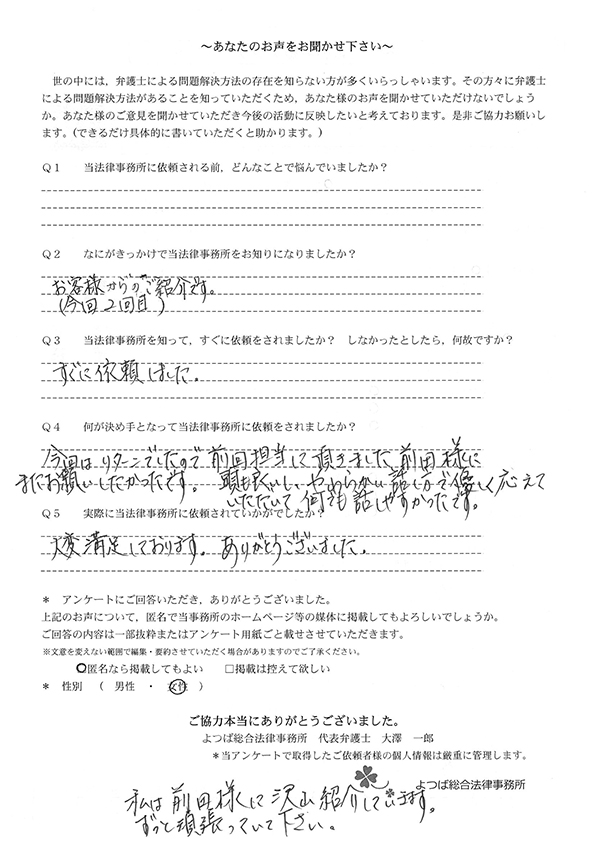 ～あなたのお声をお聞かせ下さい～
世の中には、弁護士による問題解決方法の存在を知らない方が多くいらっしゃいます。その方々に弁護士
による問題解決方法があることを知っていただくため、あなた様のお声を聞かせていただけないでしょう
か。あなた様のご意見を聞かせていただき今後の活動に反映したいと考えております。是非ご協力お願いしま
す。(できるだけ具体的に書いていただくと助かります。)
Q1　当法律事務所に依頼される前，どんなことで悩んでいましたか？
Q2　なにがきっかけで当法律事務所をお知りになりましたか？
お客様からのご紹介です。
(今回2回目)
Q3　当法律事務所を知って，すぐに依頼をされましたか？　しなかったとしたら，何故ですか？
すぐに依頼しました。
Q4　何が決め手となって当法律事務所に依頼をされましたか？
今回はリターンでしたので前回担当して頂きました前田様に
またお願いしたかったです。頭も良いし、やわらかい話し方で優しく応えて
いただいて何でも話しやすかったです。
Q5　実際に当法律事務所に依頼されていかがでしたか？
大変満足しております。ありがとうございました。
＊　アンケートにご回答いただき，ありがとうございました。
上記のお声について，匿名で当事務所のホームページ等の媒体に掲載してもよろしいでしょうか。
ご回答の内容は一部抜粋またはアンケート用紙ごと載せさせていただきます。
※文意を変えない範囲で編集・要約させていただく場合がありますのでご了承ください。
○匿名なら掲載してもよい　□掲載は控えて欲しい
＊　性別　（　男性　・　女性　）
ご協力本当にありがとうございました。
よつば総合法律事務所　代表弁護士　大澤　一郎
＊当アンケートで取得したご依頼者様の個人情報は厳重に管理します。
よつば総合法律事務所
私は前田様に沢山紹介していきます。
ずっと頑張っていて下さい。